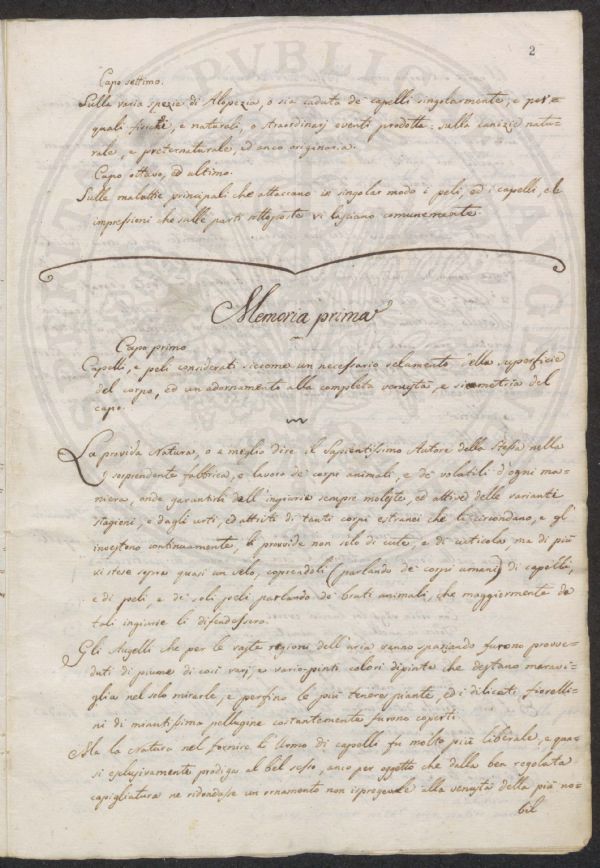 2
Capo settimo.
Sulle varia spezie di Alopezia, o sia caduta de' capelli singolarmente, e per
quali fisiche, e naturali, o straordinarj eventi prodotta: sulla canizie natu=
rale, e preternaturale, ed anco originaria.
Capo ottavo, ed ultimo.
Sulle malattie principali che attaccano in singolar modo i peli, ed i capelli, e le
impressioni che sulle parti sottoposte vi lasciano comunemente.
Memoria prima
Capo primo
Capelli, e peli considerati siccome un necessario velamento della superficie
del corpo, ed un adornamento alla completa venustà, e simmetria del
capo.
La provida Natura, o a meglio dire il Sapientissimo Autore della stessa nella
sorprendente fabbrica, e lavoro de' corpi animali, e de' volatili d'ogni ma=
niera, onde garantirli dall'ingiurie sempre moleste, ed attive delle varianti
stagioni, e dagli urti, ed attriti di tanti corpi estranei che li circondano, e gl'
investono continuamente, li provvide non solo di cute, e di cuticola, ma di più
vi stese sopra quasi un velo, coprendoli (parlando de' corpi umani) di capelli,
e di peli, e di soli peli parlando de' brati animali, che maggiormente da
tali ingiurie li difendessero.
Gli Augelli che per le vaste regioni dell'aria vanno spaziando furono provve=
duti di piume di così varj, e vario-pinti colori dipinte che destano meravi=
glia nel solo mirarle, e perfino le più tenere piante, ed i dilicati fiorelli=
ni di minutissima pellugine costantemente furono coperti.
Ma la Natura nel fornire l'Uomo di capelli fu molto più liberale, e qua=
si esclusivamente prodiga al bel sesso, anco per oggetto che dalla ben regolata
capigliatura ne ridondasse un ornamento non ispregevole alla venustà della più no=
bil